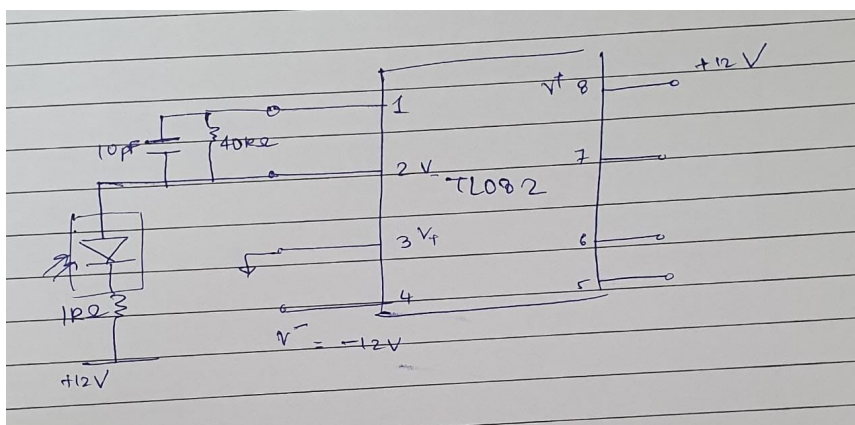 +12V
V+ 8
1
10pF
40kΩ
7
2 V-
TL082
3 V+
6
5
4
1kΩ
V- = -12V
+12V